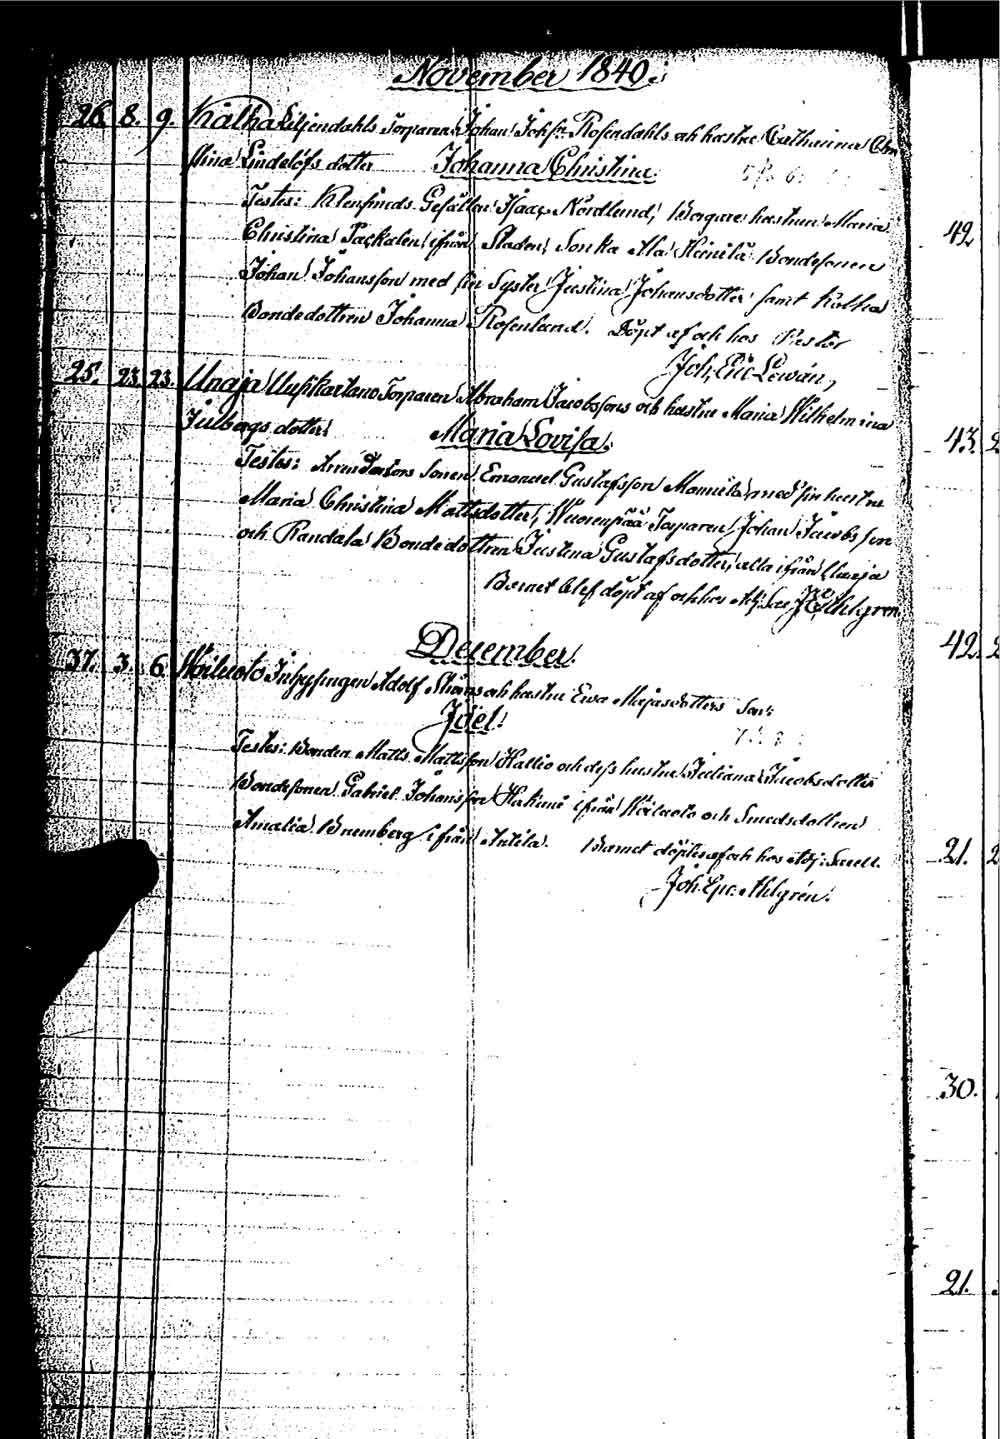 November 1840.
26. 8. 9. Kalha Liljendahls Torparen Johan Johss: Rosendahls och hustru Catharina Chri
stina Lindelöfs dotter Johanna Christina
Testes: Klensmeds Gesällen Isaac Nordlund, Borgare hustrun Maria
Christina Packalen ifrån Staden, Sonka Ala Heinilä Bondesonen
Johan Johansson med sin Syster Justina Johansdotter samt Kalha
Bondedottren Johanna Rosenlund. Döpt af och hos Pastor
Joh. Eric Lewán,
25. 23. 23. Unaja Uusikartano Torparen Abraham Jacobssons och hustru Maria Wilhelmina
Julbergs dotter Maria Lovisa.
Testes: Sonen Emanuel Gustafsson Mannila med sin hustru
Maria Christina Mattsdotter, Wuorenpää Torparen Johan Jacobsson
och Randala Bondedottren Justina Gustafsdotter, alla ifrån Unaja
Barnet blef döpt af och hos Adj: Sac: J E Ahlgren
December.
37. 3. 6. Woiluoto Inhysingen Adolf och hustru Ewa Majasdotters Son:
Joel.
Testes: Bonden Matts Mattsson Hallio och dess hustru Juliana Jacobsdotter
Bondesonen Gabriel Johansson Hakuni ifrån Woiluoto och Smedsdottren
Amalia Bremberg ifrån Anttila. Barnet döptes af och hos Adj: Sacell.
Joh. Eric Ahlgrén.
42
43.
42.
21.
30.
21.